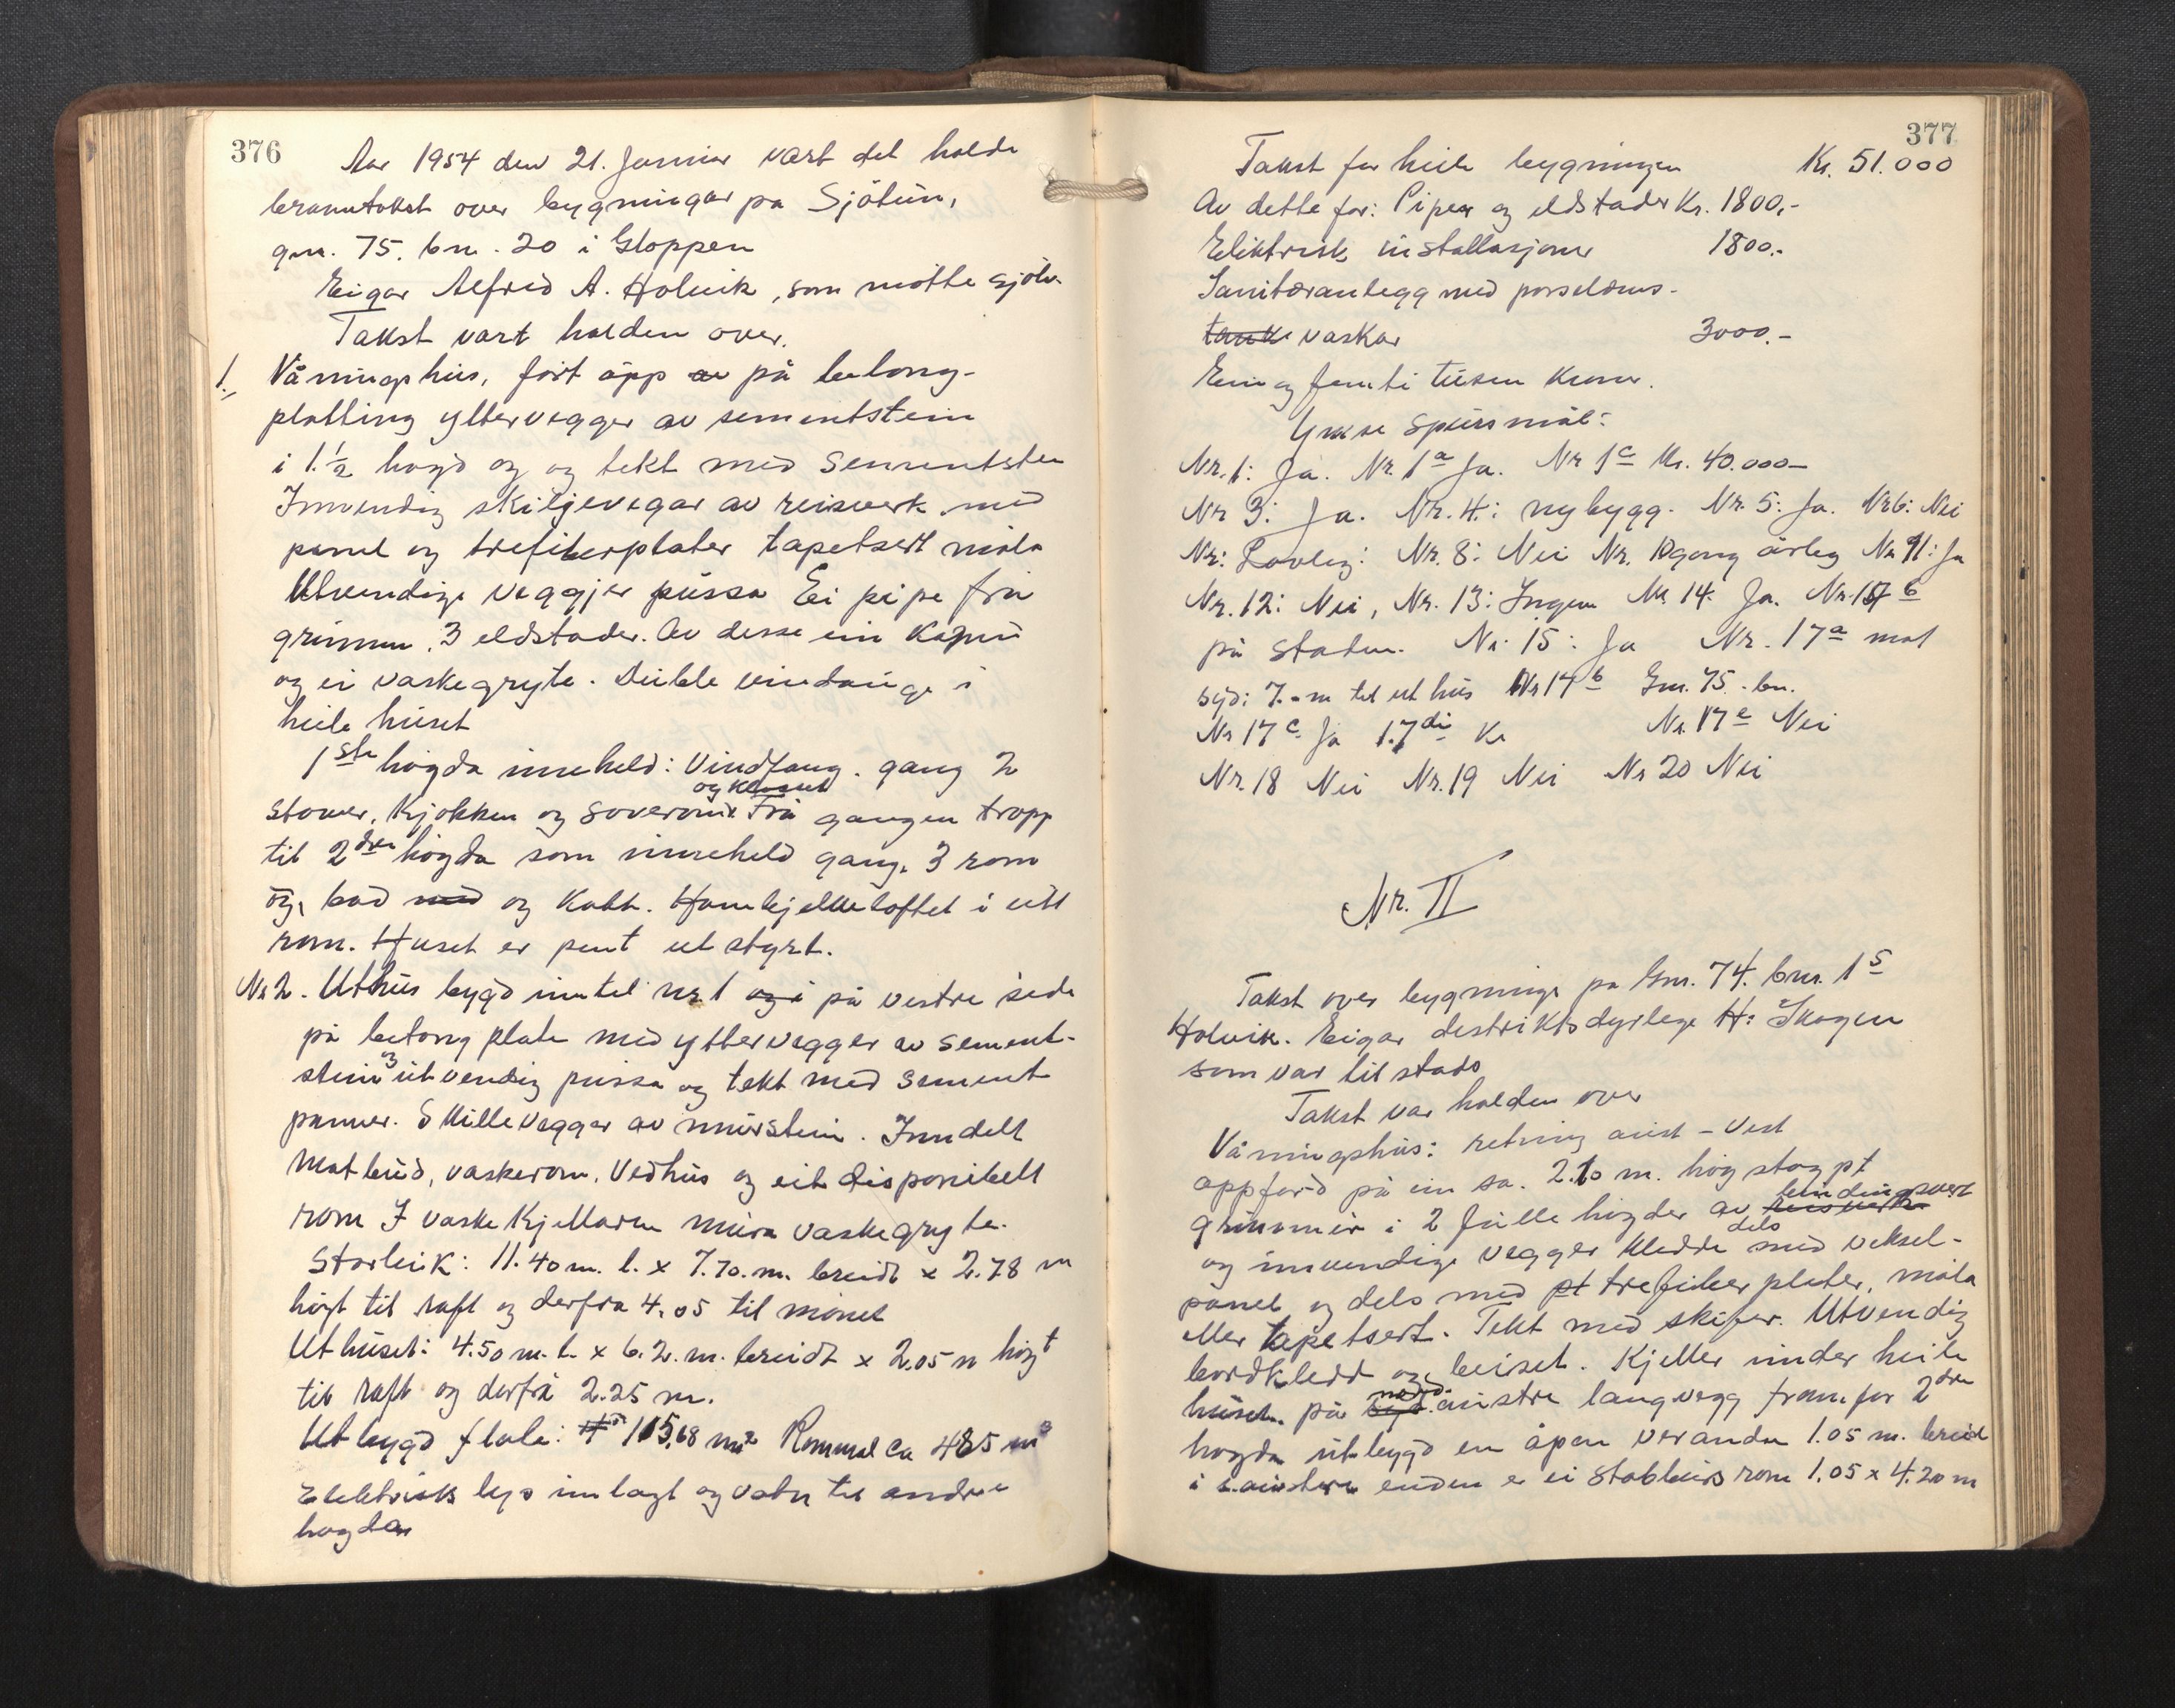 376
Aar 1954 den 21. Januar vart det halde
branntakst over bygningar pa Sjötun,
gn. 75. bn. 20 i Gloppen
Eigar Alfred A. Holvik, som mötte sjölv.
Takst vart halden over.
1. Våningshus, fört opp av på betong-
platting yttervegger av sementstein
i 1.½ høgd og og tekt med Sementsten
Innvendig skiljevegar av reisverk med
panel og trefiberplater tapetsert måla
Utvendige veggjer pussa Ei pipe frå
grunnen. 3 eldstader. Av desse ein Kamin
og ei vaskegryte. Duble vindauge i
heile huset
1ste høgda inneheld: Vindfang. gang 2
og Klosett
stover, Kjøkken og soverom. Frå gangen tropp
til 2dre høgda som inneheld gang. 3 rom
og, bad med og Kott. Hanebjelkeloftet i eitt
rom. Huset er pent ut styrt.
Nr 2. Uthus bygd inntil nr 1 og i på vestre side
på betong plate med yttervegger av sement-
stein utvendig pussa og tekt med sement
panner. Skillevegger av murstein. Inndelt
Matbud, vaskerom, Vedhus og eit disponibelt
rom I vaske Kjellaren mura vaskegryte.
Storleik: 11.40 m. l. x 7.70. m. breidt x 2.78 m
högt til raft og derfra 4.05 til mönet
Uthuset: 4.50 m. l. x 6.2. m. breidt x 2.05 m högt
til raft og derfrå 2.25 m.
Utbygd flate: 115,68 m² Rommål ca 485 m³
Elektrisk lys innlagt og vatn til andre
høgda
377
Takst for heile bygningen Kr. 51.000
Av dette for: Piper og eldstader Kr. 1800,-
Elektrisk installasjoner 1800.-
Sanitæranlegg med porselens-
tank vaskar 3000.-
Ein og femti tusen Kroner.
Ymse spursmål:
Nr. 1: Ja. Nr. 1a Ja. Nr 1c Kr. 40.000-
Nr 3: Ja. Nr. 4.: nybygg. Nr. 5: Ja. Nr 6: Nei
Nr: Lovleg: Nr. 8: Nei Nr. 10 gong årleg Nr 11: Ja
Nr. 12: Nei, Nr. 13: Ingen Nr 14. Ja. Nr. 15 b
på staden. Nr. 15: Ja Nr. 17a mot
syd: 7.- m til ut hus Nr 17b Gnr. 75. bn.
Nr 17c Ja 17di Kr Nr 17e Nei
Nr. 18 Nei Nr. 19 Nei Nr 20 Nei
Nr. II
Takst over bygninge pa Gnr. 74. bnr. 15
Holvik. Eigar destriktsdyrlege H: Skogen
som var til stads
Takst var halden over
Våningshus: retning aust - Vest
oppförd på ein ca. 2.10 m. høg støypt
bindingsverk
grunnmur i 2 fulle høgder av reisverk
dels
og innvendige vegger kledde med veksel-
panel og dels med pt trefiberplater, måla
eller tapetsert. Tekt med skifer. Utvendig
bordkledd og beiset. Kjeller under heile
nord
huset. på syd. austre langvegg framfor 2dre
høgda utbygd en åpen veranda 1.05 m. breid
i s. austre enden er ei stabbursrom 1.05 x 4.20 m